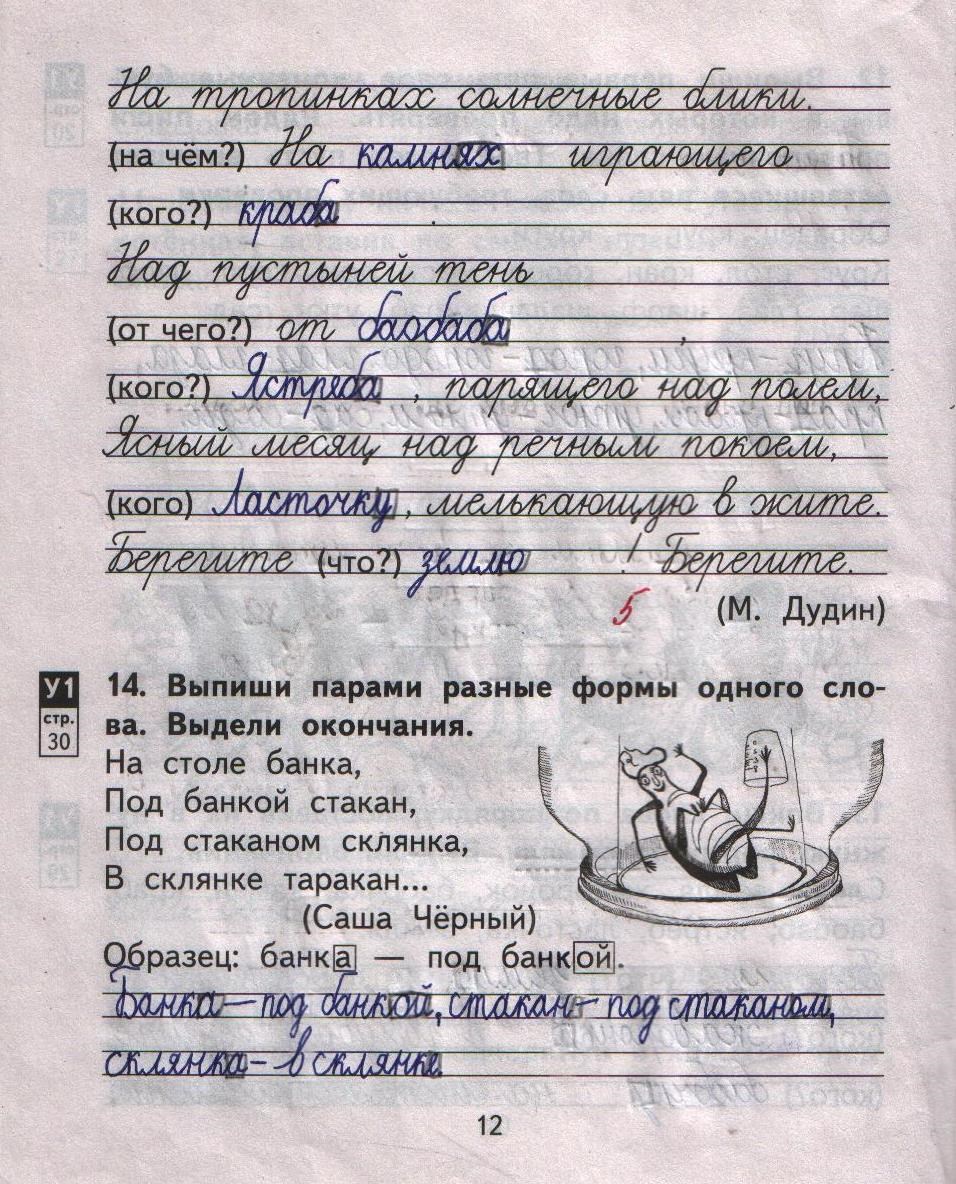 На тропинках солнечные блики.
(на чём?) На камнях играющего
(кого?) краба .
Над пустыней тень
(от чего?) от баобаба ,
(кого?) Ястреба , парящего над полем,
Ясный месяц над речным покоем,
(кого) Ласточку , мелькающую в жите.
Берегите (что?) землю ! Берегите.
5 (М. Дудин)
У1
стр.
30
14. Выпиши парами разные формы одного сло-
ва. Выдели окончания.
На столе банка,
Под банкой стакан,
Под стаканом склянка,
В склянке таракан...
(Саша Чёрный)
Образец: банка — под банкой.
Банка – под банкой, стакан – под стаканом,
склянка – в склянке
12